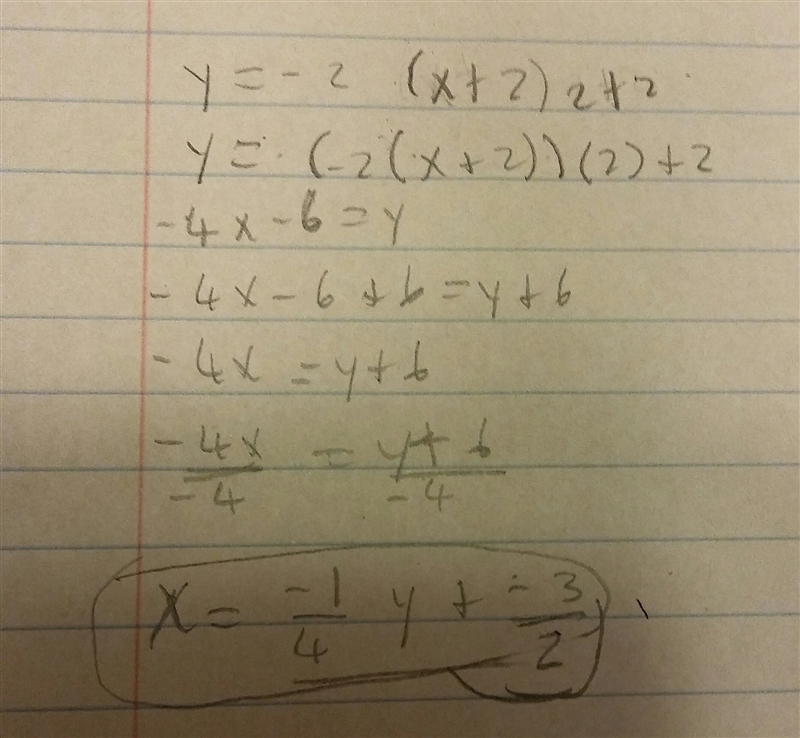 y = -2 (x+2) 2+2
y = (-2(x+2))(2)+2
-4x-6=y
-4x-6+6=y+6
-4x=y+6
-4x/-4 = y+6/-4
x= -1/4 y + -3/2